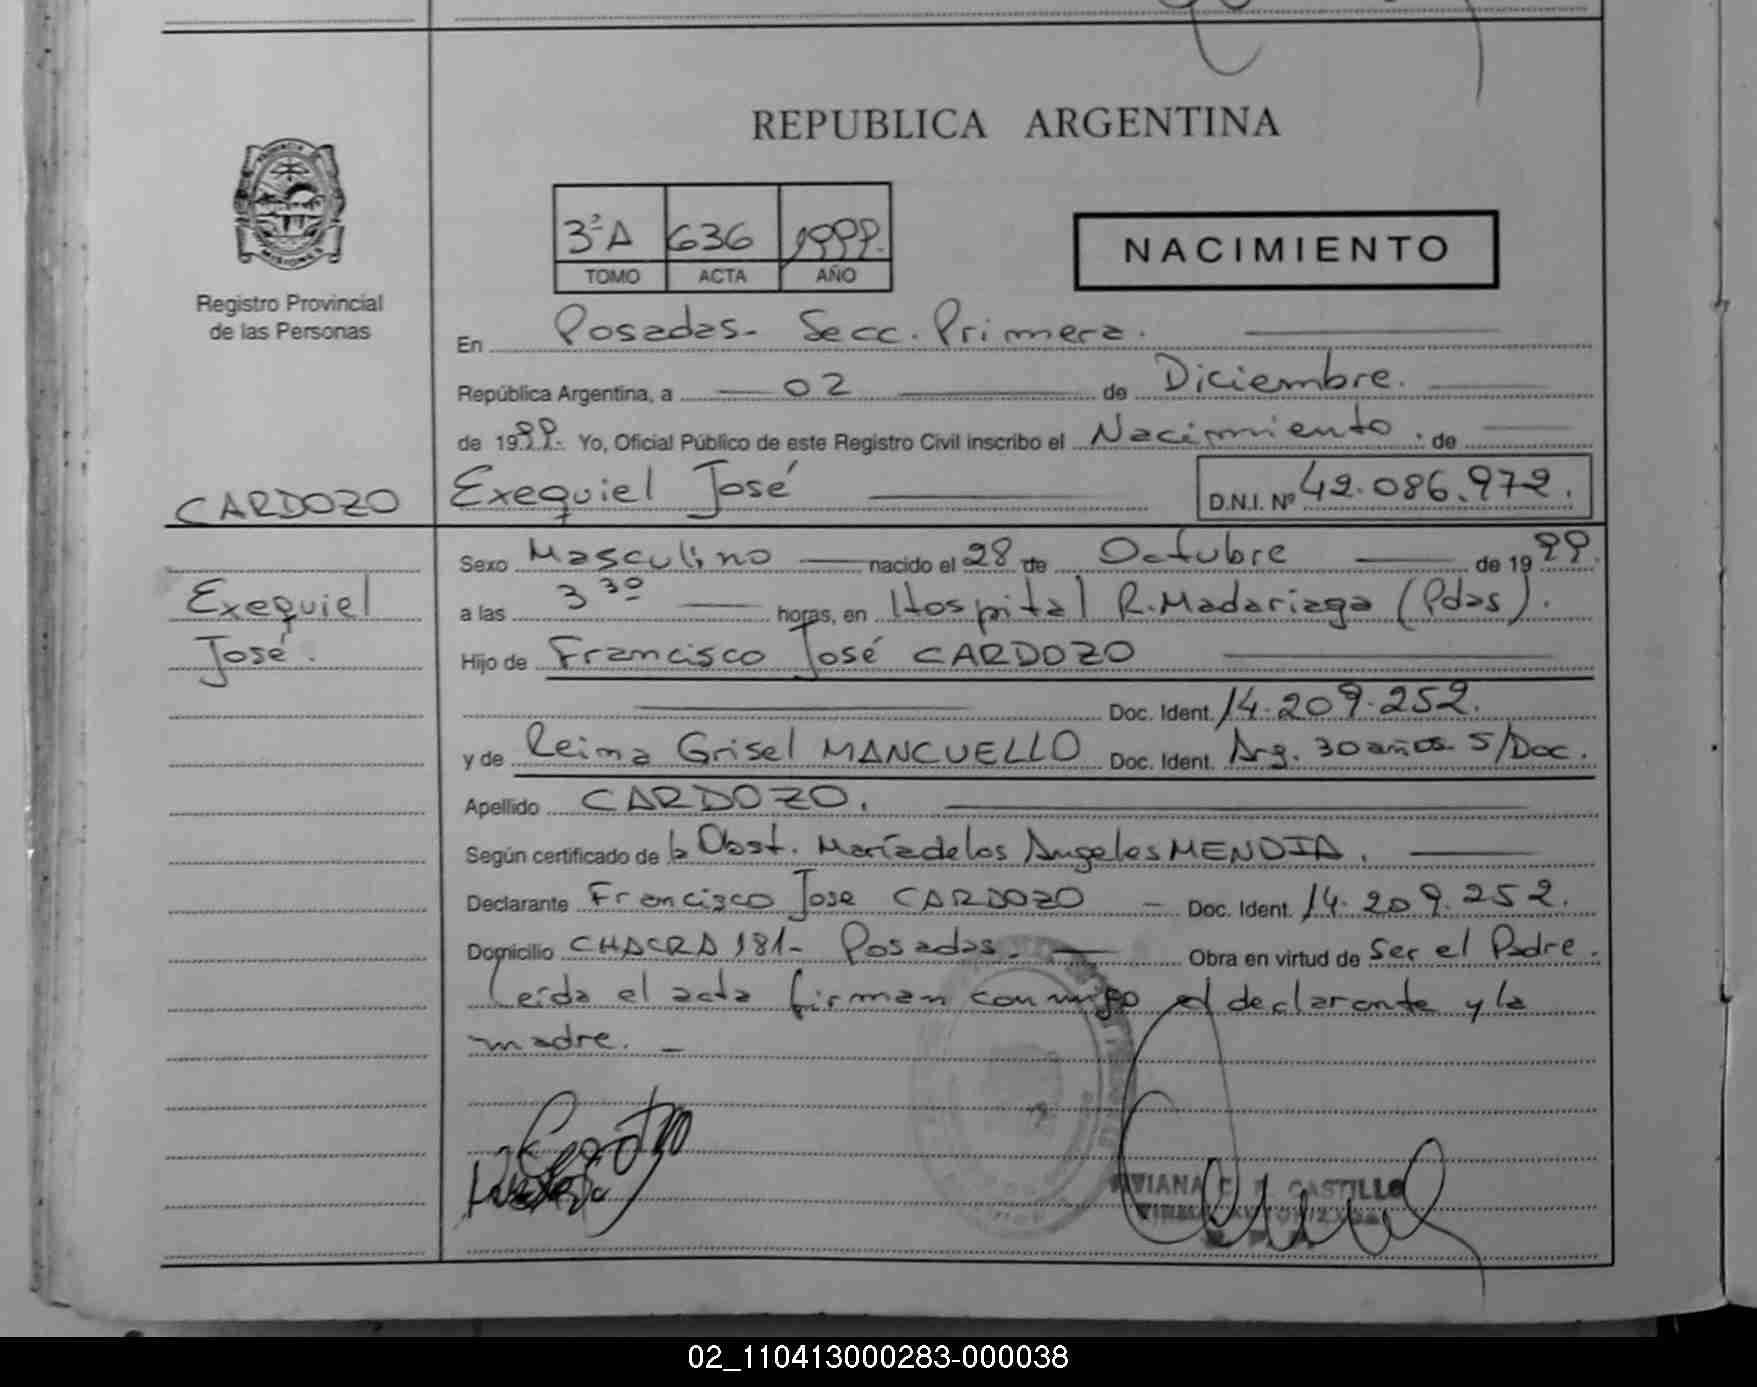 REPUBLICA ARGENTINA
3ª A 636 1999.
TOMO ACTA AÑO
NACIMIENTO
Registro Provincial
de las Personas
En Posadas - Secc. Primera.
República Argentina, a 02 de Diciembre.
de 1999. Yo, Oficial Público de este Registro Civil inscribo el Nacimiento. de
CARDOZO Exequiel José D.N.I. Nº 42.086.972.
Exequiel
José.
Sexo Masculino nacido el 28 de Octubre de 1999.
a las 3 30 horas, en Hospital R. Madariaga (Pdas).
Hijo de Francisco José CARDOZO
Doc. Ident. 14.209.252.
y de Reina Grisel MANCUELLO Doc. Ident. Arg. 30 años. S/Doc.
Apellido CARDOZO.
Según certificado de la Obst. María de los Angeles MENDIA.
Declarante Francisco Jose CARDOZO - Doc. Ident. 14.209.252.
Domicilio CHACRA 181 - Posadas. Obra en virtud de Ser el Padre.
Leída el acta firman conmigo el declarante y la
madre. -
CASTILLO
02_110413000283-000038